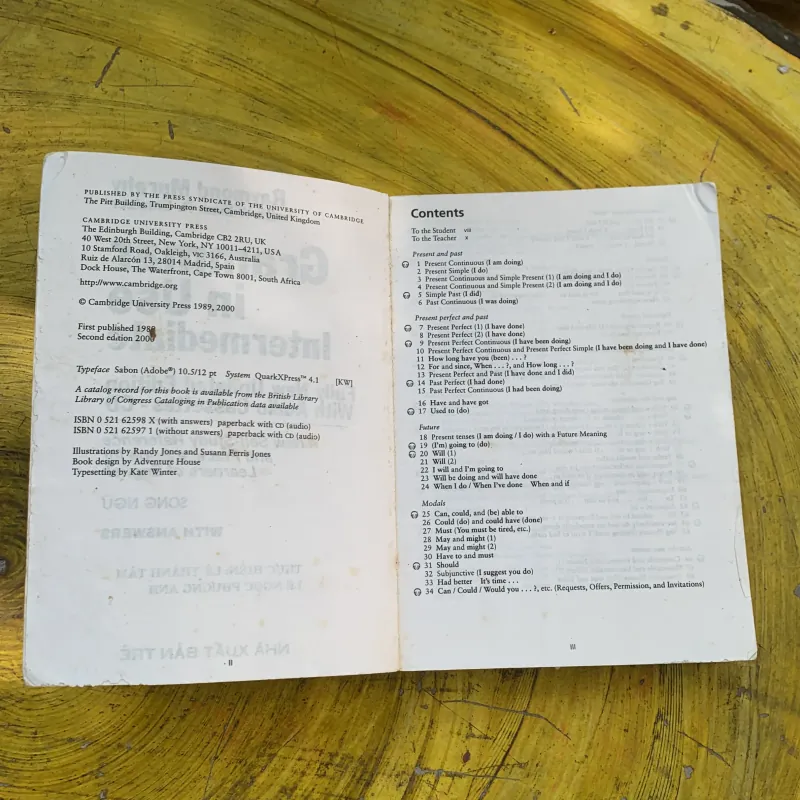 PUBLISHED BY THE PRESS SYNDICATE OF THE UNIVERSITY OF CAMBRIDGE
The Pitt Building, Trumpington Street, Cambridge, United Kingdom
CAMBRIDGE UNIVERSITY PRESS
The Edinburgh Building, Cambridge CB2 2RU, UK
40 West 20th Street, New York, NY 10011–4211, USA
10 Stamford Road, Oakleigh, VIC 3166, Australia
Ruiz de Alarcón 13, 28014 Madrid, Spain
Dock House, The Waterfront, Cape Town 8001, South Africa
http://www.cambridge.org
© Cambridge University Press 1989, 2000
First published 1989
Second edition 2000
Typeface Sabon (Adobe®) 10.5/12 pt System QuarkXPress™ 4.1 [KW]
A catalog record for this book is available from the British Library
Library of Congress Cataloging in Publication data available
ISBN 0 521 62598 X (with answers) paperback with CD (audio)
ISBN 0 521 62597 1 (without answers) paperback with CD (audio)
Illustrations by Randy Jones and Susann Ferris Jones
Book design by Adventure House
Typesetting by Kate Winter
II
Contents
To the Student viii
To the Teacher x
Present and past
1 Present Continuous (I am doing)
2 Present Simple (I do)
3 Present Continuous and Present Simple (1) (I am doing and I do)
4 Present Continuous and Present Simple (2) (I am doing and I do)
5 Simple Past (I did)
6 Past Continuous (I was doing)
Present perfect and past
7 Present Perfect (1) (I have done)
8 Present Perfect (2) (I have done)
9 Present Perfect Continuous (I have been doing)
10 Present Perfect Continuous and Present Perfect Simple (I have been doing and I have done)
11 How long have you (been) . . . ?
12 For and since, When . . . ?, and How long . . . ?
13 Present Perfect and Past (I have done and I did)
14 Past Perfect (I had done)
15 Past Perfect Continuous (I had been doing)
16 Have and have got
17 Used to (do)
Future
18 Present tenses (I am doing / I do) with a Future Meaning
19 (I'm) going to (do)
20 Will (1)
21 Will (2)
22 I will and I'm going to
23 Will be doing and will have done
24 When I do / When I've done When and if
Modals
25 Can, could, and (be) able to
26 Could (do) and could have (done)
27 Must (You must be tired, etc.)
28 May and might (1)
29 May and might (2)
30 Have to and must
31 Should
32 Subjunctive (I suggest you do)
33 Had better It's time . . .
34 Can / Could / Would you . . . ?, etc. (Requests, Offers, Permission, and Invitations)
III